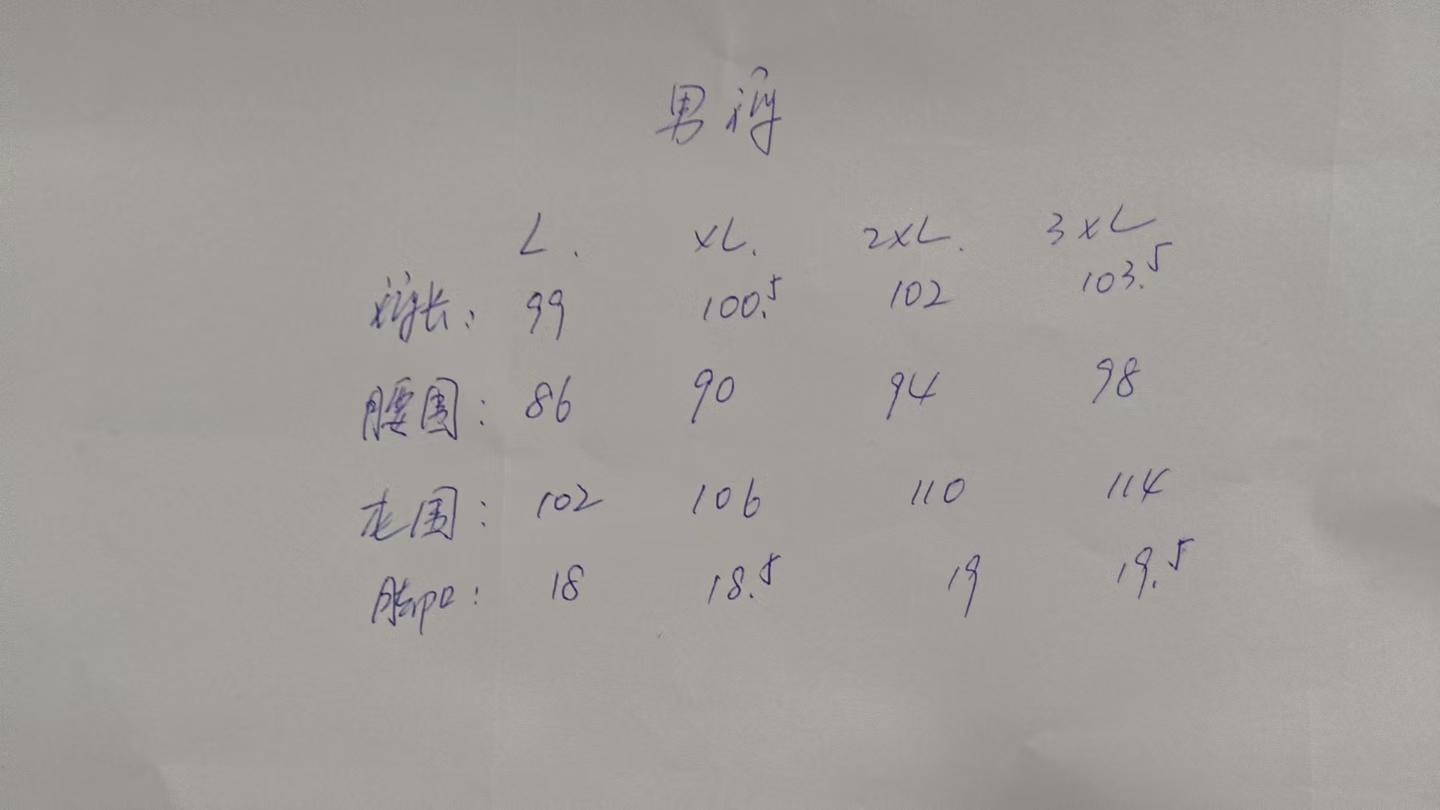 男裤
L. XL. 2XL. 3XL
裤长: 99 100.5 102 103.5
腰围: 86 90 94 98
臀围: 102 106 110 114
脚口: 18 18.5 19 19.5